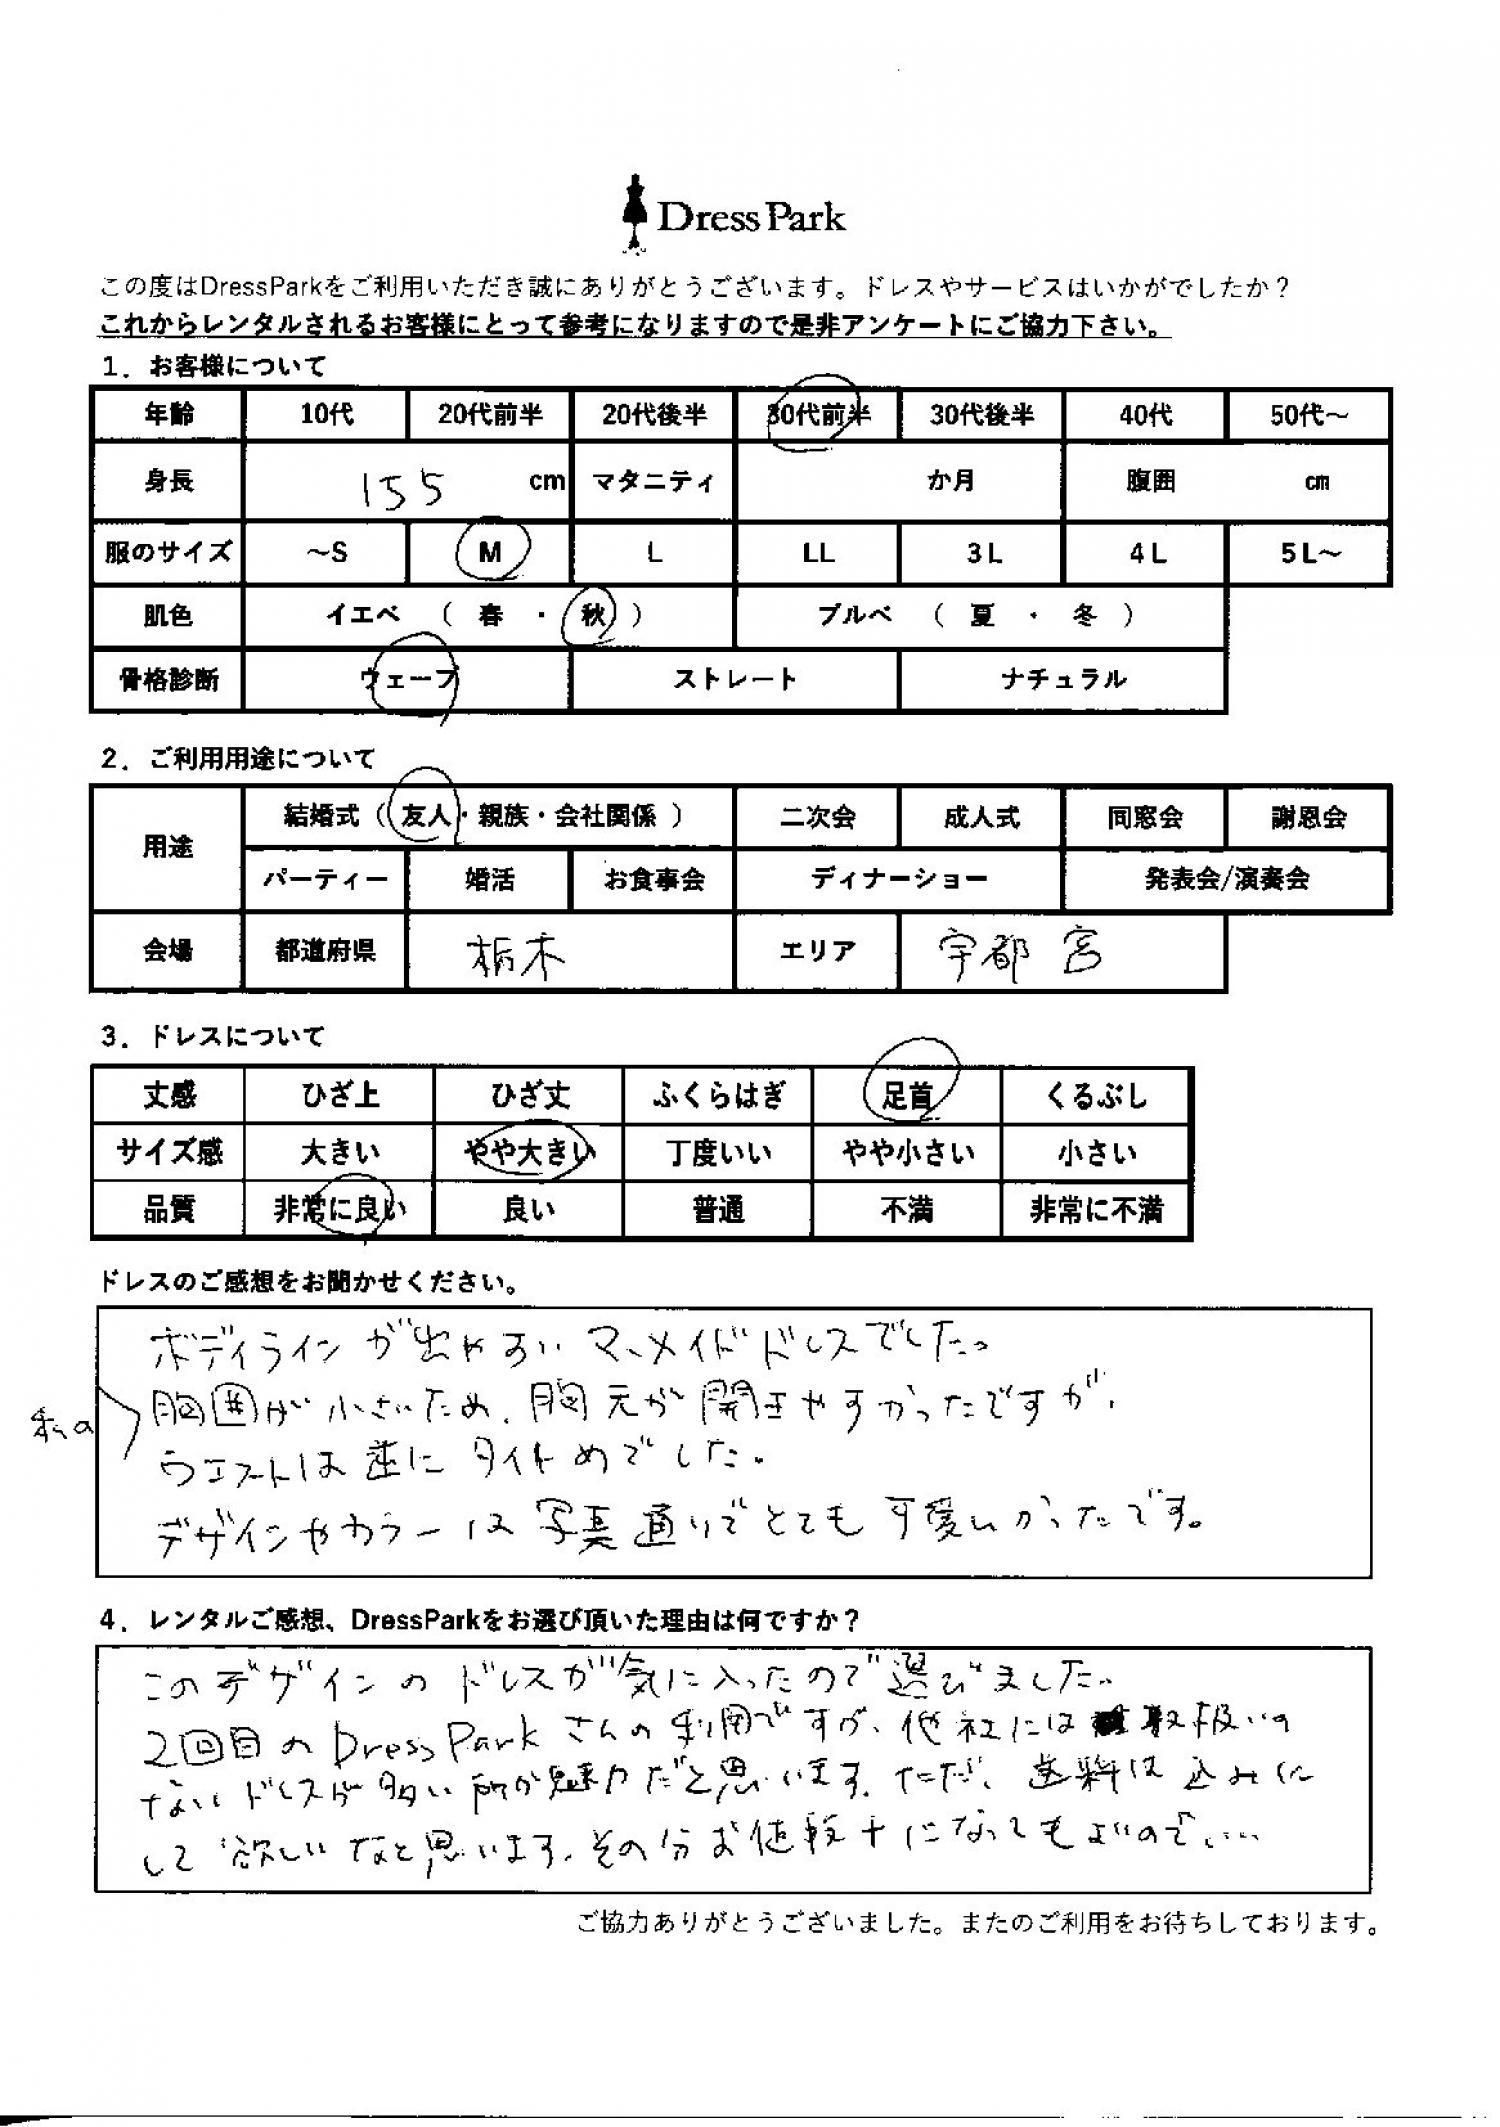 Dress Park
この度はDressParkをご利用いただき誠にありがとうございます。ドレスやサービスはいかがでしたか？
これからレンタルされるお客様にとって参考になりますので是非アンケートにご協力下さい。
1．お客様について
年齢 10代 20代前半 20代後半 30代前半 30代後半 40代 50代～
身長 155 cm マタニティ か月 腹囲 cm
服のサイズ ～S M L LL 3L 4L 5L～
肌色 イエベ （ 春 ・ 秋 ） ブルベ （ 夏 ・ 冬 ）
骨格診断 ウェーブ ストレート ナチュラル
2．ご利用用途について
用途 結婚式（ 友人・親族・会社関係 ） 二次会 成人式 同窓会 謝恩会
パーティー 婚活 お食事会 ディナーショー 発表会/演奏会
会場 都道府県 栃木 エリア 宇都宮
3．ドレスについて
丈感 ひざ上 ひざ丈 ふくらはぎ 足首 くるぶし
サイズ感 大きい やや大きい 丁度いい やや小さい 小さい
品質 非常に良い 良い 普通 不満 非常に不満
ドレスのご感想をお聞かせください。
ボディラインが出やすいマーメイドドレスでした。
私の胸囲が小さいため、胸元が開きやすかったですが、
ウエストは逆にタイトめでした。
デザインやカラーは写真通りでとても可愛いかったです。
4．レンタルご感想、DressParkをお選び頂いた理由は何ですか？
このデザインのドレスが気に入ったので選びました。
2回目のDress Parkさんの利用ですが、他社には取扱いの
ないドレスが多い所が魅力だと思います。ただ、送料は込みに
して欲しいなと思います。その分お値段+になってもよいので…
ご協力ありがとうございました。またのご利用をお待ちしております。